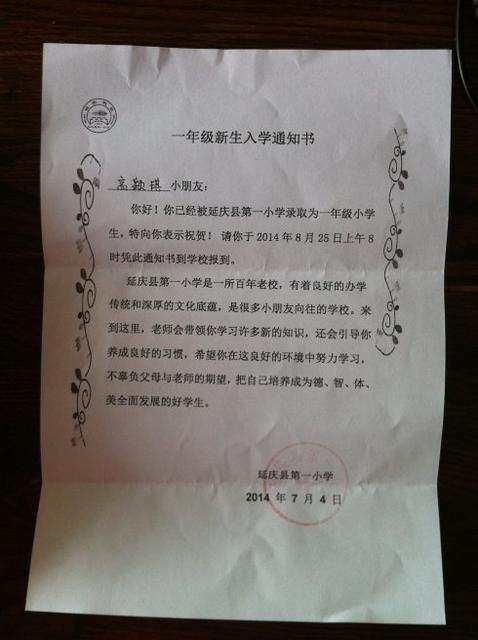 一年级新生入学通知书
高颖琪 小朋友：
你好！你已经被延庆县第一小学录取为一年级小学
生，特向你表示祝贺！ 请你于 2014 年 8 月 25 日上午 8
时凭此通知书到学校报到。
延庆县第一小学是一所百年老校，有着良好的办学
传统和深厚的文化底蕴，是很多小朋友向往的学校。来
到这里，老师会带领你学习许多新的知识，还会引导你
养成良好的习惯，希望你在这良好的环境中努力学习，
不辜负父母与老师的期望，把自己培养成为德、智、体、
美全面发展的好学生。
延庆县第一小学
2014 年 7 月 4 日